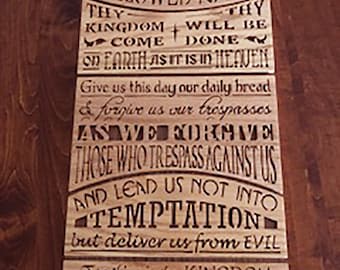 THY THY
KINGDOM WILL BE
COME DONE
on EARTH AS IT IS IN HEAVEN
Give us this day our daily bread
& forgive us our trespasses
AS WE FORGIVE
THOSE WHO TRESPASS AGAINST US
AND LEAD US NOT INTO
TEMPTATION
but deliver us from EVIL